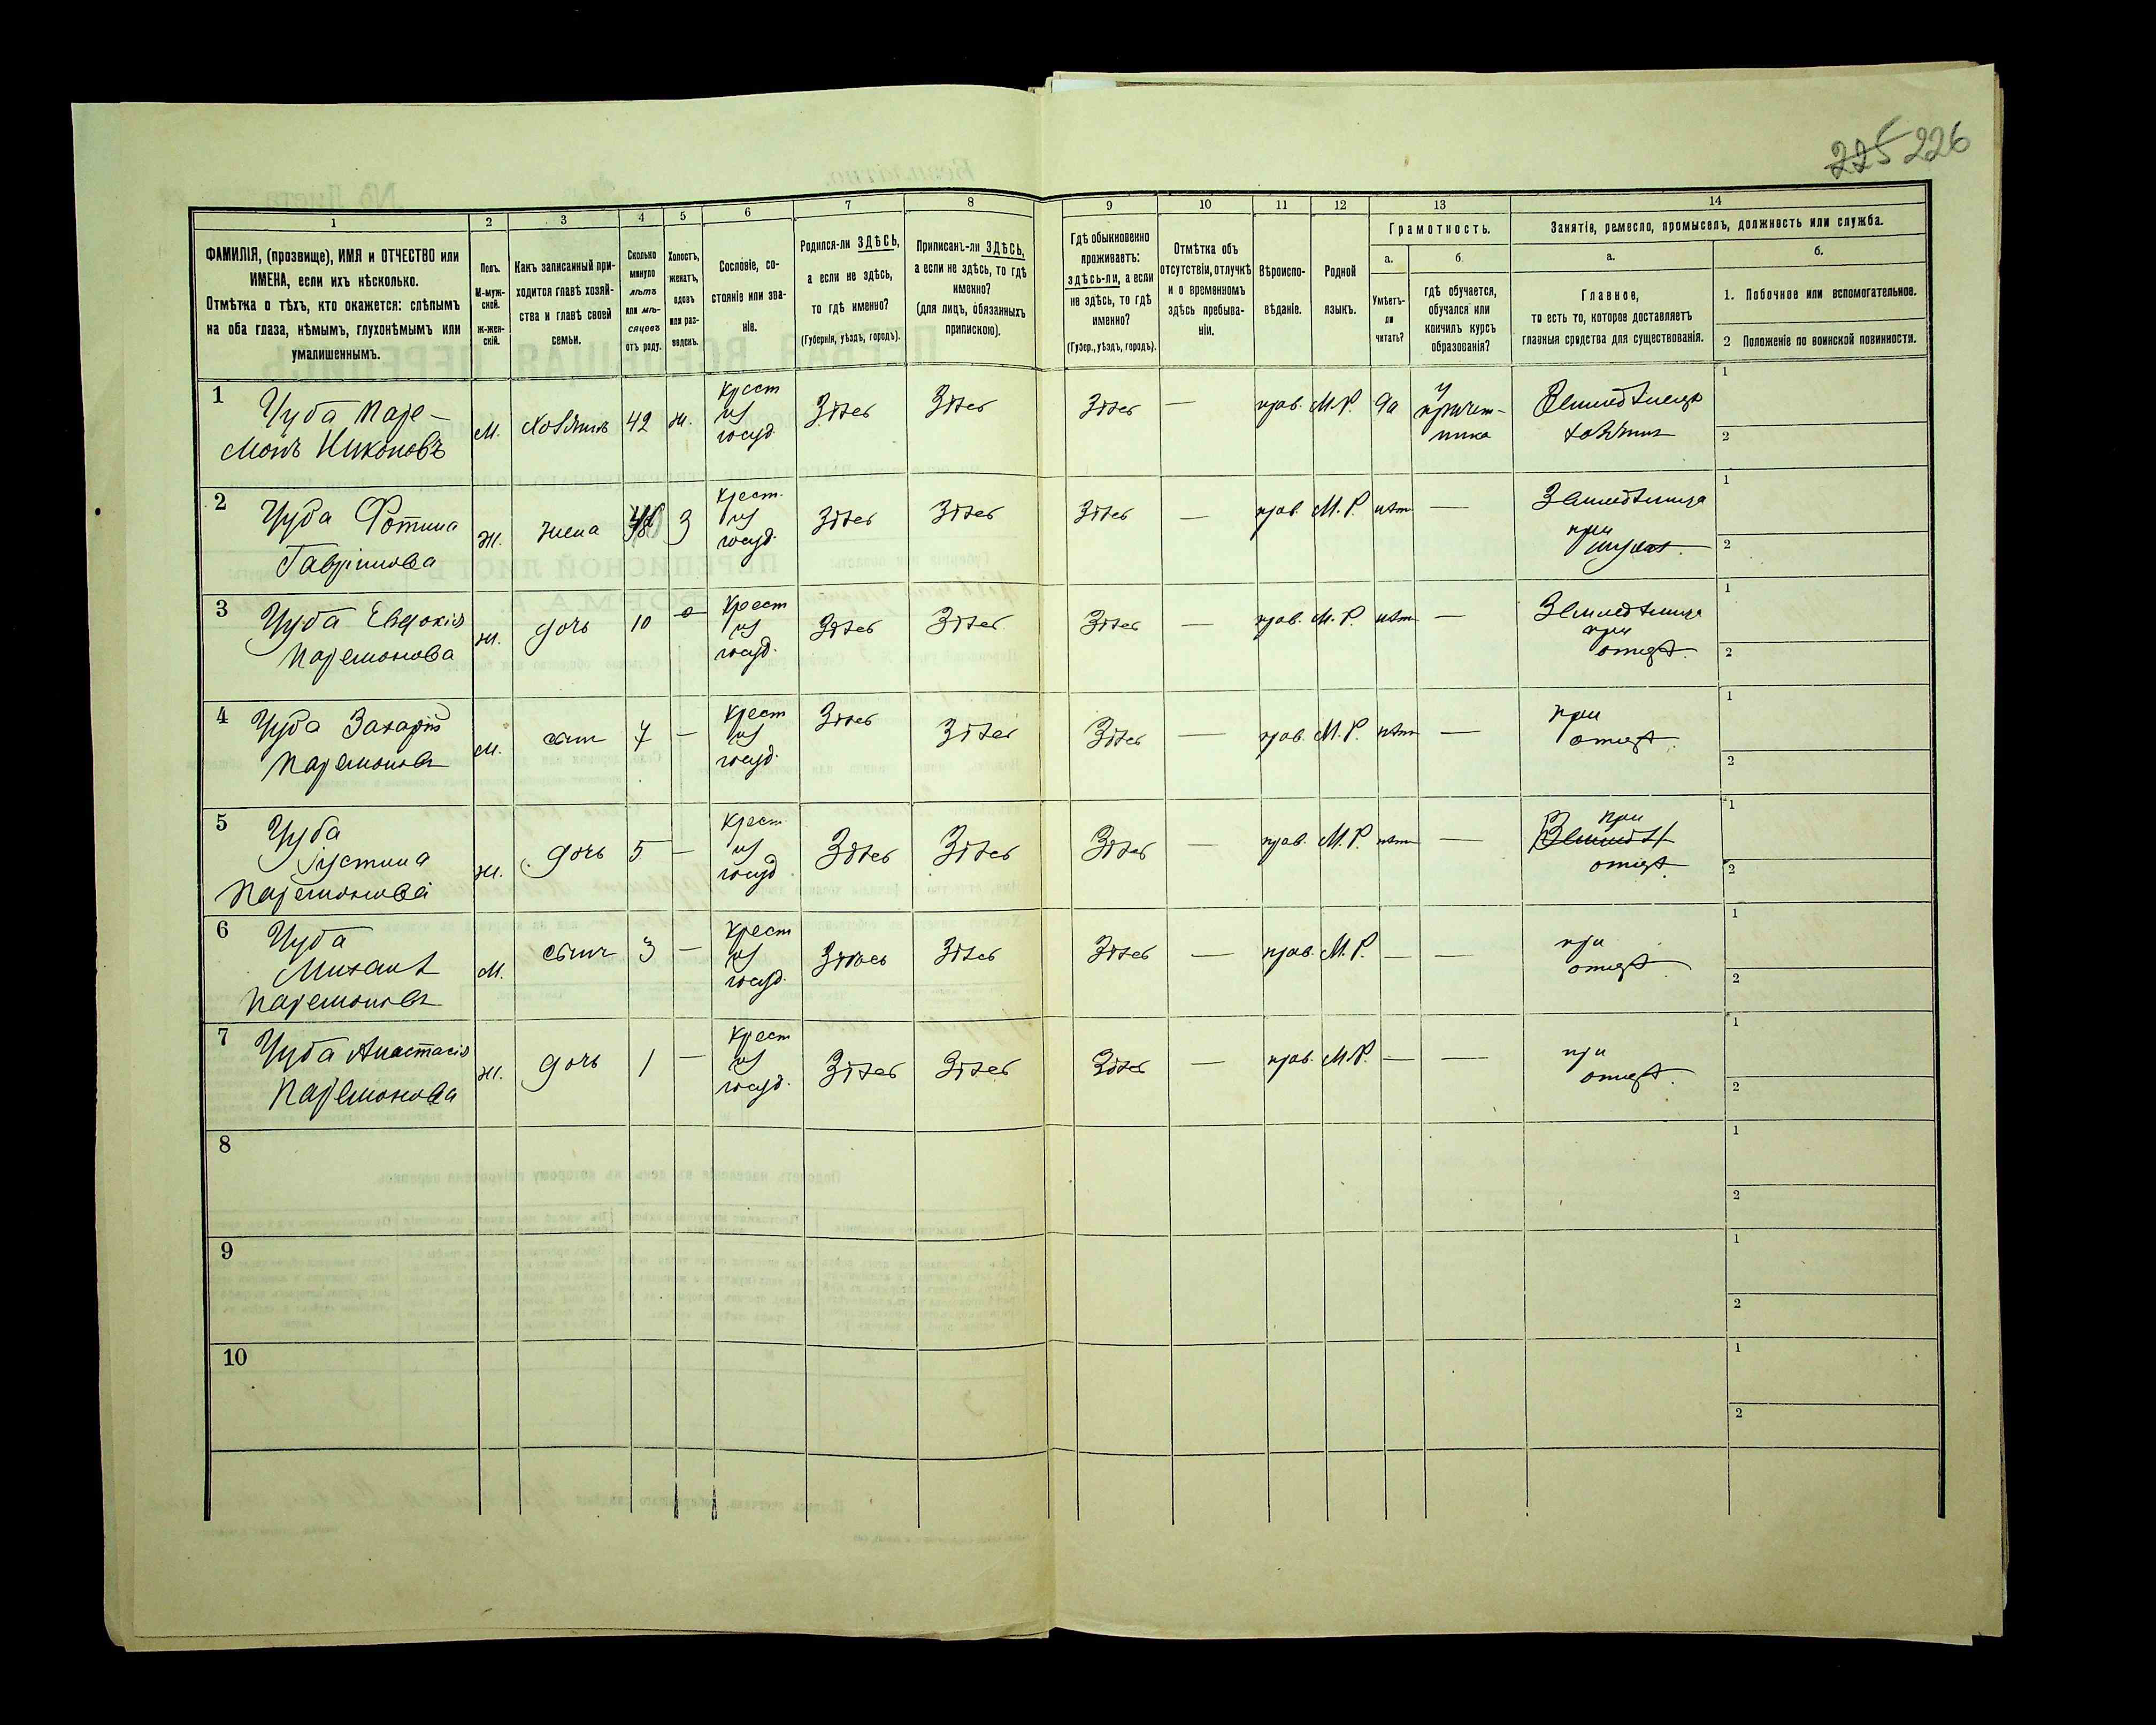 225 226
1 2 3 4 5 6 7 8 9 10 11 12 13 14
ФАМИЛІЯ, (прозвище), ИМЯ и ОТЧЕСТВО или
ИМЕНА, если ихъ нѣсколько.
Отмѣтка о тѣхъ, кто окажется: слѣпымъ
на оба глаза, нѣмымъ, глухонѣмымъ или
умалишеннымъ.
Полъ.
М-муж-
ской.
ж-жен-
скій.
Какъ записанный при-
ходится главѣ хозяй-
ства и главѣ своей
семьи.
Сколько
минуло
лѣтъ
или мѣ-
сяцевъ
отъ роду.
Холостъ,
женатъ,
вдовъ
или раз-
веденъ.
Сословіе, со-
стояніе или зва-
ніе.
Родился-ли ЗДѢСЬ,
а если не здѣсь,
то гдѣ именно?
(Губернія, уѣздъ, городъ).
Приписанъ-ли ЗДѢСЬ,
а если не здѣсь, то гдѣ
именно?
(для лицъ, обязанныхъ
припискою).
Гдѣ обыкновенно
проживаетъ:
здѣсь-ли, а если
не здѣсь, то гдѣ
именно?
(Губер., уѣздъ, городъ).
Отмѣтка объ
отсутствіи, отлучкѣ
и о временномъ
здѣсь пребыва-
ніи.
Вѣроиспо-
вѣданіе.
Родной
языкъ.
Грамотность.
а.
Умѣетъ-
ли
читать?
б.
гдѣ обучается,
обучался или
кончилъ курсъ
образованія?
Занятія, ремесло, промыселъ, должность или служба.
а.
Главное,
то есть то, которое доставляетъ
главныя средства для существованія.
б.
1. Побочное или вспомогательное.
2 Положеніе по воинской повинности.
1 Чуба Паре-
монъ Никоновъ
М. хозяинъ 42 ж.
крест
из
госуд.
Здѣсь Здѣсь Здѣсь — прав. М.Р. да
у
причет-
ника
Земледѣлецъ
хозяинъ
1
2
2 Чуба Фотина
Гавріилова
Ж. жена З
крест.
из
госуд.
Здѣсь Здѣсь Здѣсь — прав. М.Р. нѣт —
Земледѣлица
при
мужѣ.
1
2
3 Чуба Евдокія
Паремонова
Ж. дочь 10 —
крест
из
госуд.
Здѣсь Здѣсь Здѣсь — прав. М.Р. нѣт —
Земледѣлица
при
отцѣ.
1
2
4 Чуба Захарій
Паремоновъ
М. сынъ 7 —
крест
из
госуд.
Здѣсь Здѣсь Здѣсь — прав. М.Р. нѣт —
при
отцѣ.
1
2
5 Чуба
Іустина
Паремонова
Ж. дочь 5 —
крест
из
госуд
Здѣсь Здѣсь Здѣсь — прав. М.Р. нѣт —
при
Земледѣ
отцѣ.
1
2
6 Чуба
Михаил
Паремоновъ
М. сынъ 3 —
крест
из
госуд.
Здѣсь Здѣсь Здѣсь — прав. М.Р. — —
при
отцѣ.
1
2
7 Чуба Анастасія
Паремонова
Ж. дочь 1 —
крест
из
госуд.
Здѣсь Здѣсь Здѣсь — прав. М.Р. — —
при
отцѣ.
1
2
8
1
2
9
1
2
10
1
2